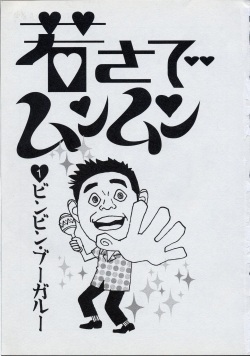 若さで
ムンムン
❶ビンビン・ブーガルー